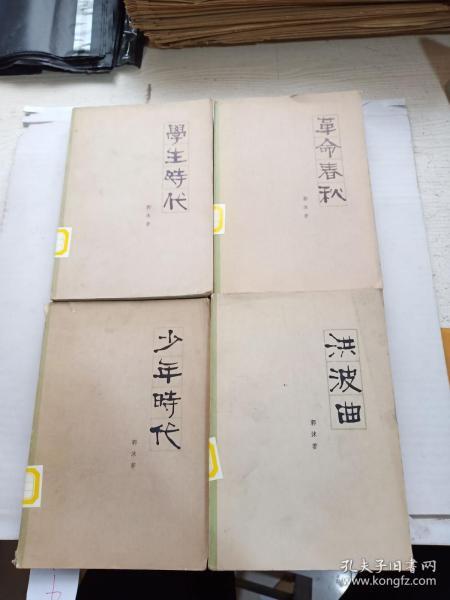 學生時代
郭沫若
革命春秋
郭沫若
少年時代
郭沫若
洪波曲
郭沫若
孔夫子旧书网
www.kongfz.com